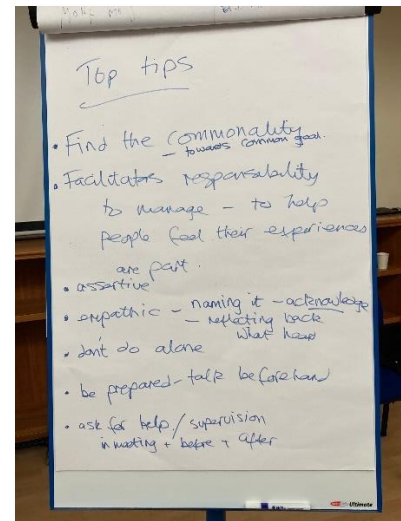 Top tips
• Find the commonality
– towards common goal.
• Facilitators responsability
to manage – to help
people feel their experiences
are part.
• assertive
• empathic – naming it – acknowledge
– reflecting back
what heard
• don't do alone
• be prepared – talk beforehand
• ask for help / supervision
in meeting + before + after
Ultimate